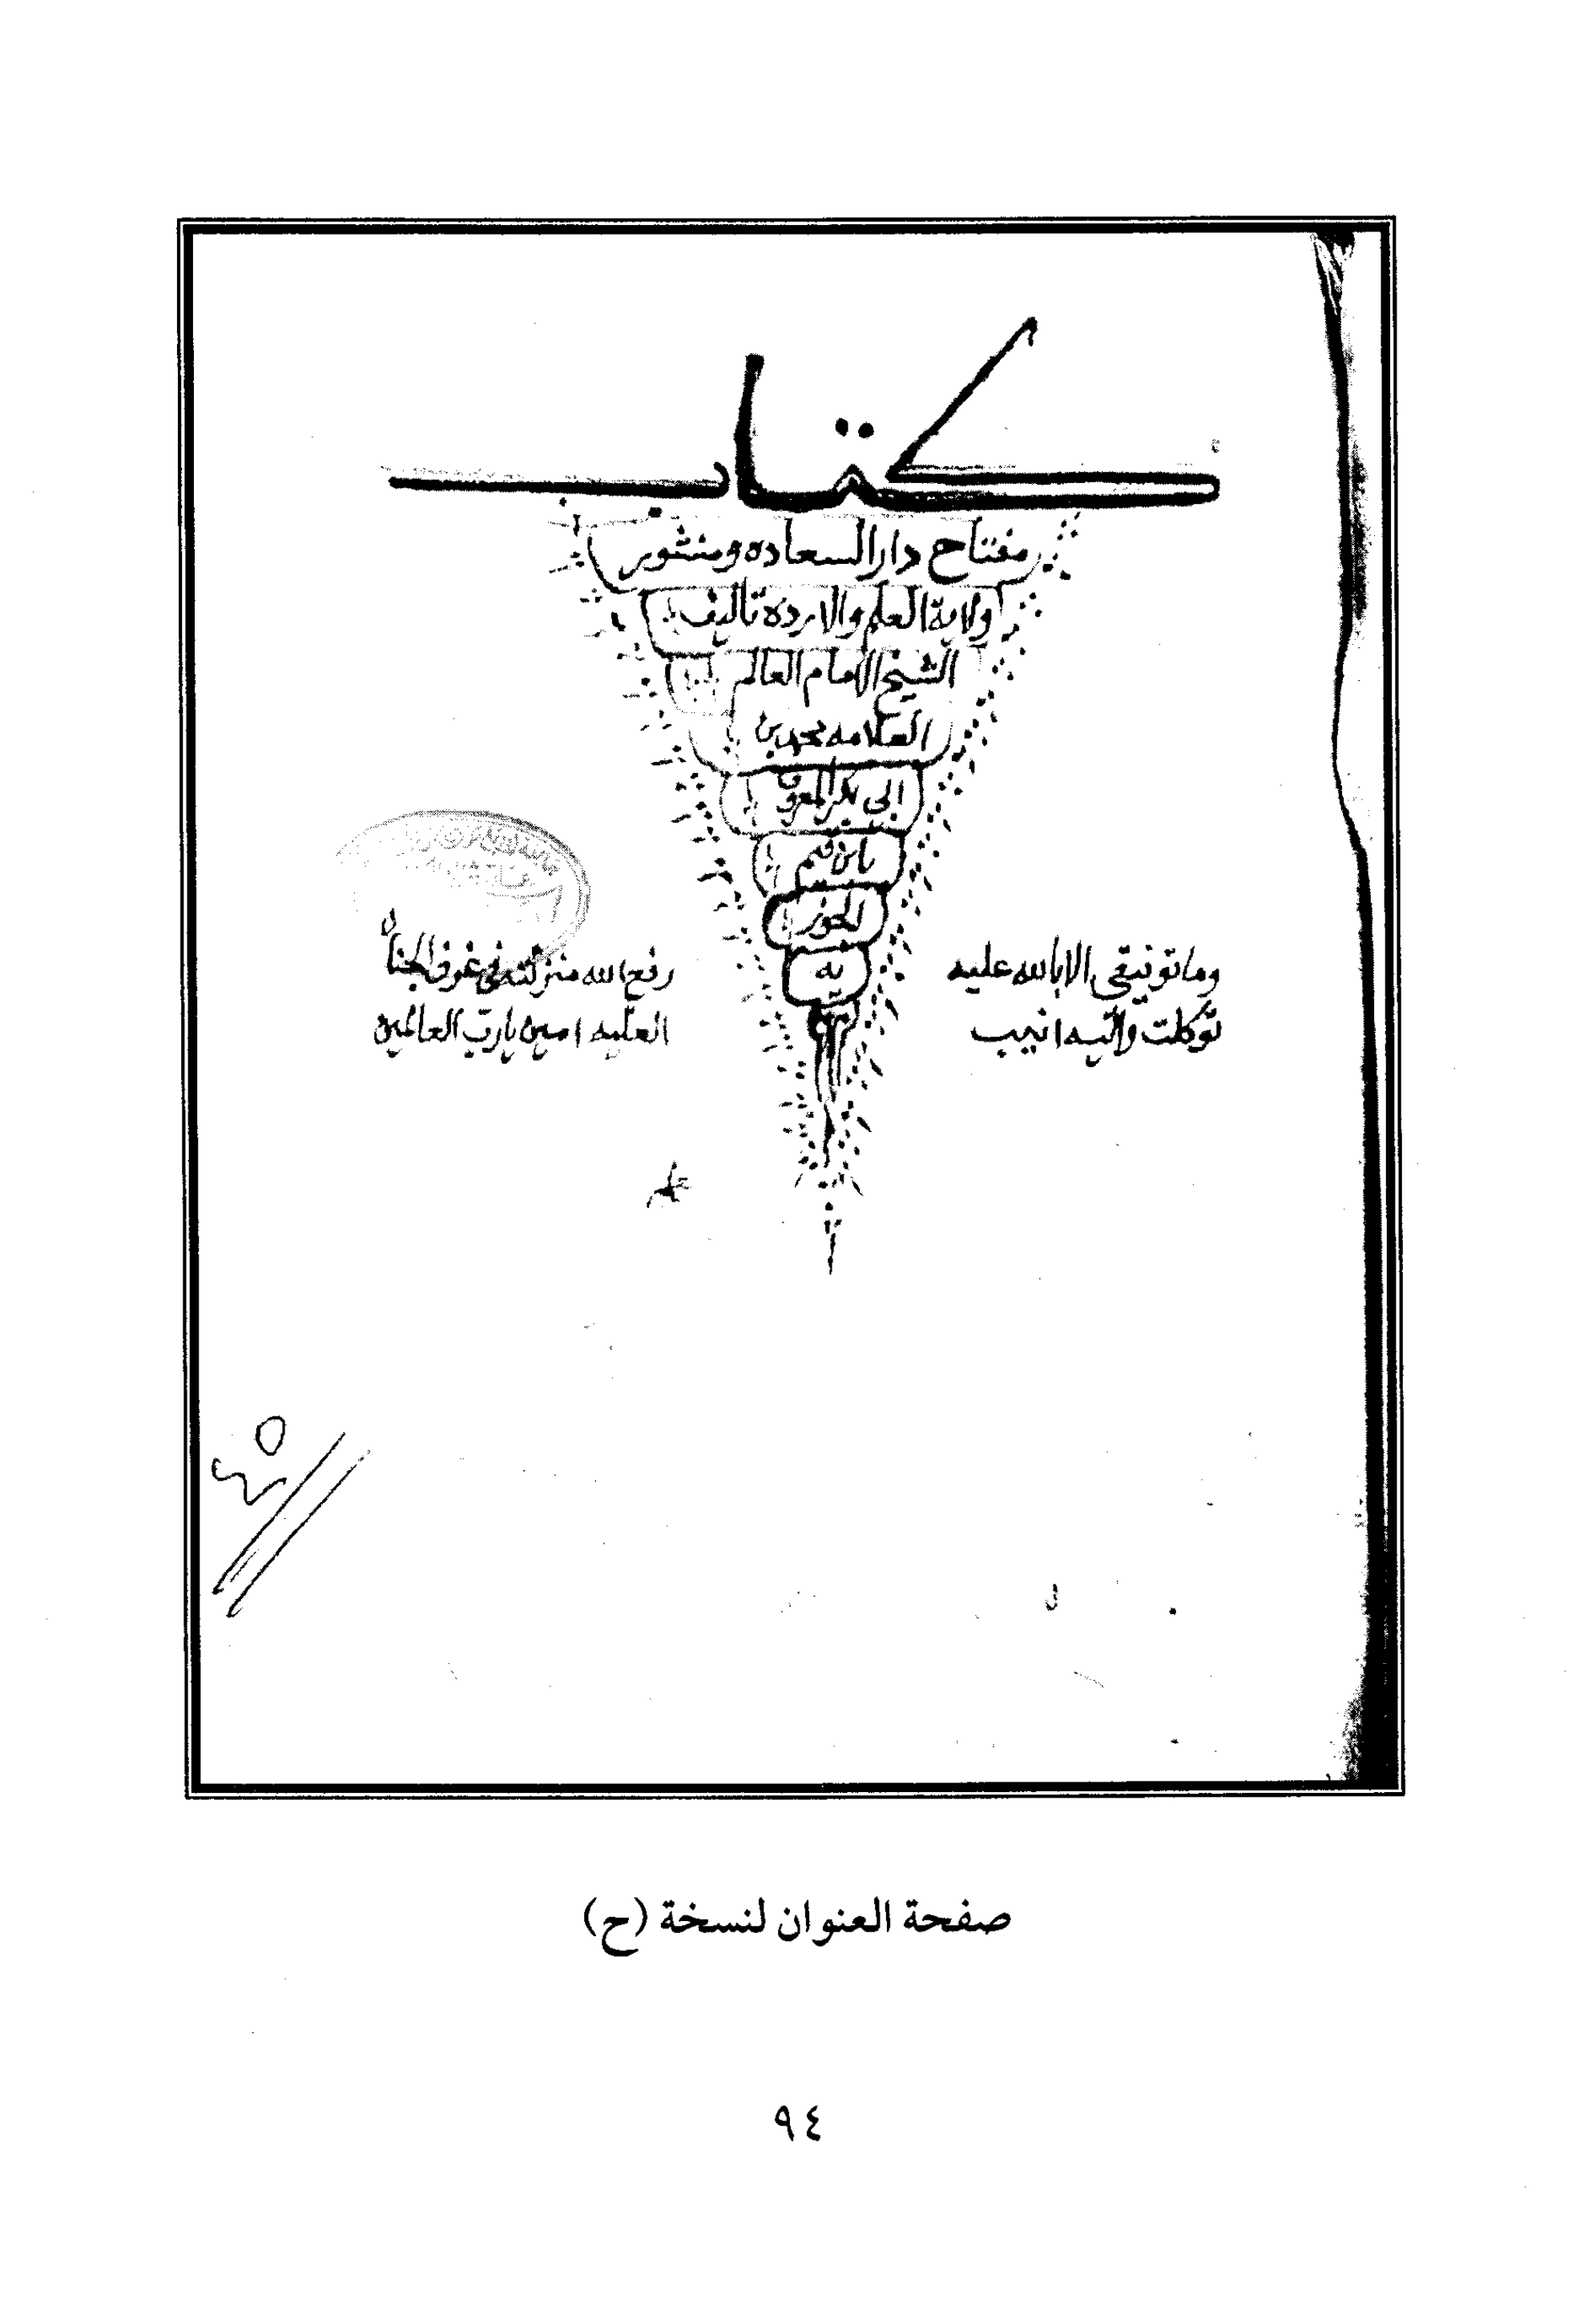 كتاب
مفتاح دار السعاده ومنثور
ولاية العلم والاردة تاليف
الشيخ الامام العالم
العلامه محمد بن
ابي بكر المعروف
بابن قيم
الجوز
يه
وما توفيقي الا بالله عليه
توكلت واليه انيب
رفع الله منزلته في غرف الجنان
العليه امين يارب العالمين
صفحة العنوان لنسخة (ح)
٩٤